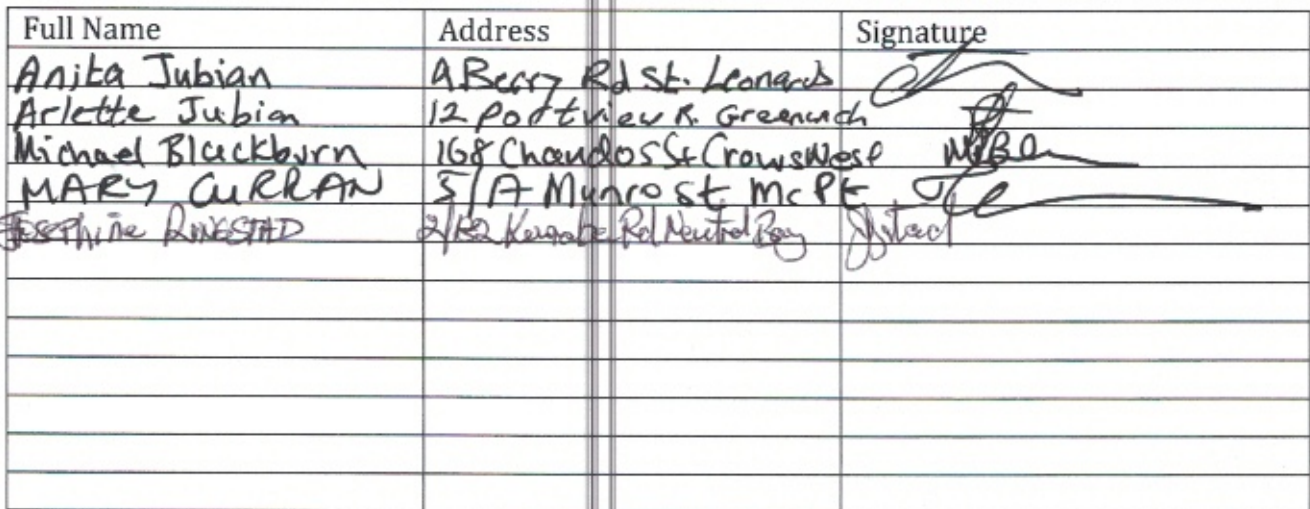 Full Name Address Signature
Anita Jubian A Berry Rd St. Leonards
Arlette Jubian 12 Portview R. Greenwich
Michael Blackburn 168 Chandos St Crows Nest
MARY CURRAN 5/A Munro st McPt
Josephine RINGSTAD Rd Neutral Bay